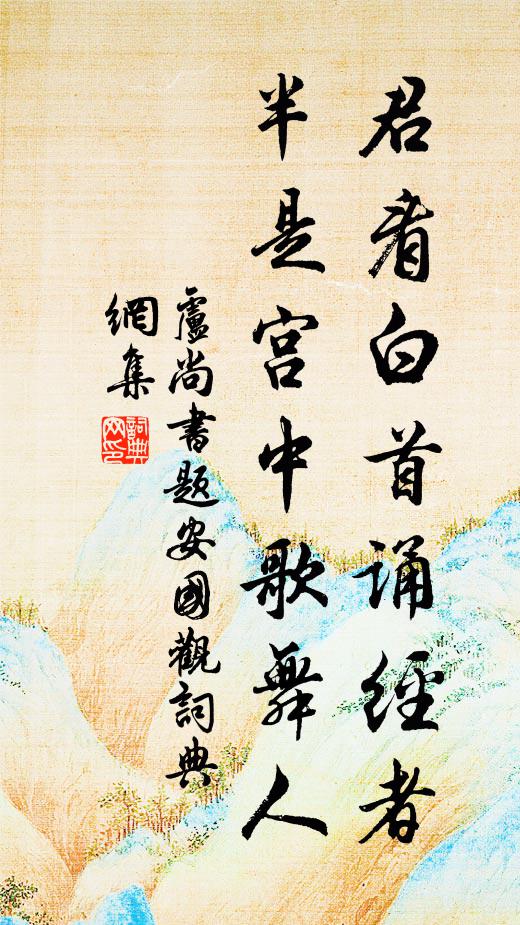 君看白首诵經者
半是宫中歌舞人
盧尚書题安國觀詞典
網集
詞典
网印